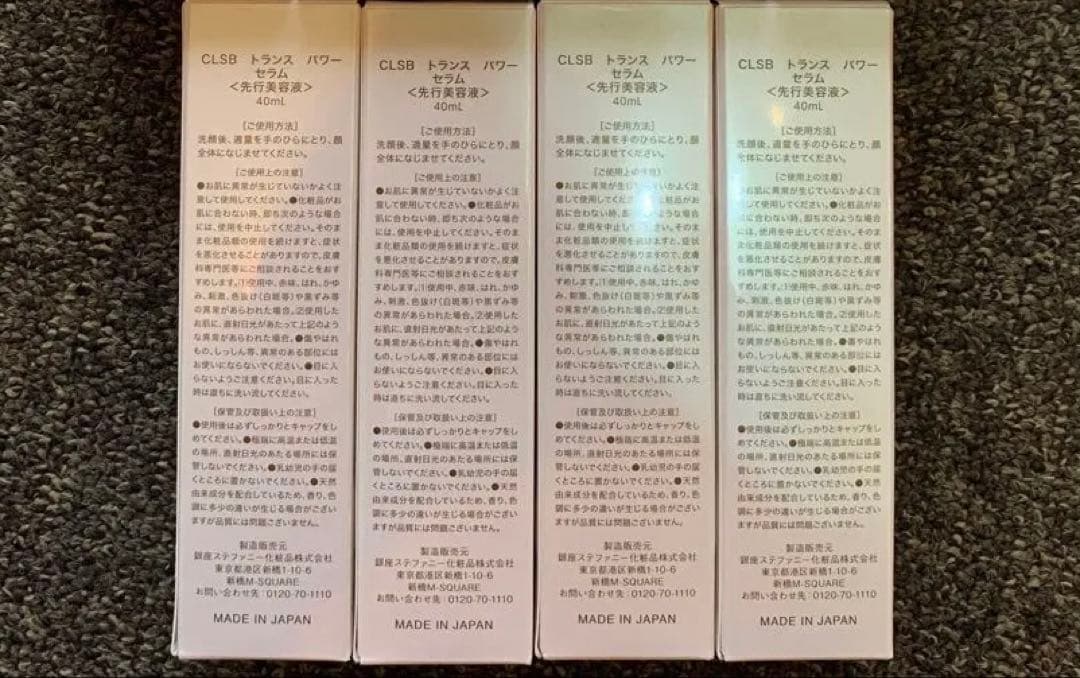 CLSB トランス パワー
セラム
＜先行美容液＞
40mL
［ご使用方法］
洗顔後、適量を手のひらにとり、顔
全体になじませてください。
［ご使用上の注意］
●お肌に異常が生じていないかよく注
意して使用してください。●化粧品がお
肌に合わない時、即ち次のような場合
には、使用を中止してください。そのま
ま化粧品類の使用を続けますと、症状
を悪化させることがありますので、皮膚
科専門医等にご相談されることをおす
すめします。①使用中、赤味、はれ、かゆ
み、刺激、色抜け(白斑等)や黒ずみ等
の異常があらわれた場合。②使用した
お肌に、直射日光があたって上記のよう
な異常があらわれた場合。●傷やはれ
もの、しっしん等、異常のある部位には
お使いにならないでください。●目に入
らないようご注意ください。目に入った
時は直ちに洗い流してください。
［保管及び取扱い上の注意］
●使用後は必ずしっかりとキャップをし
めてください。●極端に高温または低温
の場所、直射日光のあたる場所には保
管しないでください。●乳幼児の手の届
くところに置かないでください。●天然
由来成分を配合しているため、香り、色
調に多少の違いが生じる場合がござい
ますが品質には問題ございません。
製造販売元
銀座ステファニー化粧品株式会社
東京都港区新橋1-10-6
新橋M-SQUARE
お問い合わせ先：0120-70-1110
MADE IN JAPAN
CLSB トランス パワー
セラム
＜先行美容液＞
40mL
［ご使用方法］
洗顔後、適量を手のひらにとり、顔
全体になじませてください。
［ご使用上の注意］
●お肌に異常が生じていないかよく注
意して使用してください。●化粧品がお
肌に合わない時、即ち次のような場合
には、使用を中止してください。そのま
ま化粧品類の使用を続けますと、症状
を悪化させることがありますので、皮膚
科専門医等にご相談されることをおす
すめします。①使用中、赤味、はれ、かゆ
み、刺激、色抜け(白斑等)や黒ずみ等
の異常があらわれた場合。②使用した
お肌に、直射日光があたって上記のよう
な異常があらわれた場合。●傷やはれ
もの、しっしん等、異常のある部位には
お使いにならないでください。●目に入
らないようご注意ください。目に入った
時は直ちに洗い流してください。
［保管及び取扱い上の注意］
●使用後は必ずしっかりとキャップをし
めてください。●極端に高温または低温
の場所、直射日光のあたる場所には保
管しないでください。●乳幼児の手の届
くところに置かないでください。●天然
由来成分を配合しているため、香り、色
調に多少の違いが生じる場合がござい
ますが品質には問題ございません。
製造販売元
銀座ステファニー化粧品株式会社
東京都港区新橋1-10-6
新橋M-SQUARE
お問い合わせ先：0120-70-1110
MADE IN JAPAN
CLSB トランス パワー
セラム
＜先行美容液＞
40mL
［ご使用方法］
洗顔後、適量を手のひらにとり、顔
全体になじませてください。
［ご使用上の注意］
●お肌に異常が生じていないかよく注
意して使用してください。●化粧品がお
肌に合わない時、即ち次のような場合
には、使用を中止してください。そのま
ま化粧品類の使用を続けますと、症状
を悪化させることがありますので、皮膚
科専門医等にご相談されることをおす
すめします。①使用中、赤味、はれ、かゆ
み、刺激、色抜け(白斑等)や黒ずみ等
の異常があらわれた場合。②使用した
お肌に、直射日光があたって上記のよう
な異常があらわれた場合。●傷やはれ
もの、しっしん等、異常のある部位には
お使いにならないでください。●目に入
らないようご注意ください。目に入った
時は直ちに洗い流してください。
［保管及び取扱い上の注意］
●使用後は必ずしっかりとキャップをし
めてください。●極端に高温または低温
の場所、直射日光のあたる場所には保
管しないでください。●乳幼児の手の届
くところに置かないでください。●天然
由来成分を配合しているため、香り、色
調に多少の違いが生じる場合がござい
ますが品質には問題ございません。
製造販売元
銀座ステファニー化粧品株式会社
東京都港区新橋1-10-6
新橋M-SQUARE
お問い合わせ先：0120-70-1110
MADE IN JAPAN
CLSB トランス パワー
セラム
＜先行美容液＞
40mL
［ご使用方法］
洗顔後、適量を手のひらにとり、顔
全体になじませてください。
［ご使用上の注意］
●お肌に異常が生じていないかよく注
意して使用してください。●化粧品がお
肌に合わない時、即ち次のような場合
には、使用を中止してください。そのま
ま化粧品類の使用を続けますと、症状
を悪化させることがありますので、皮膚
科専門医等にご相談されることをおす
すめします。①使用中、赤味、はれ、かゆ
み、刺激、色抜け(白斑等)や黒ずみ等
の異常があらわれた場合。②使用した
お肌に、直射日光があたって上記のよう
な異常があらわれた場合。●傷やはれ
もの、しっしん等、異常のある部位には
お使いにならないでください。●目に入
らないようご注意ください。目に入った
時は直ちに洗い流してください。
［保管及び取扱い上の注意］
●使用後は必ずしっかりとキャップをし
めてください。●極端に高温または低温
の場所、直射日光のあたる場所には保
管しないでください。●乳幼児の手の届
くところに置かないでください。●天然
由来成分を配合しているため、香り、色
調に多少の違いが生じる場合がござい
ますが品質には問題ございません。
製造販売元
銀座ステファニー化粧品株式会社
東京都港区新橋1-10-6
新橋M-SQUARE
お問い合わせ先：0120-70-1110
MADE IN JAPAN